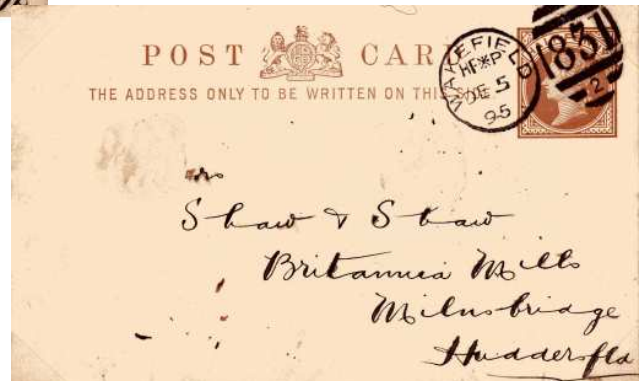 POST CAR
THE ADDRESS ONLY TO BE WRITTEN ON THIS
WAKEFIELD
HF*P
DE 5
95
831
2
Shaw & Shaw
Britannia Mills
Milnsbridge
Huddersfld